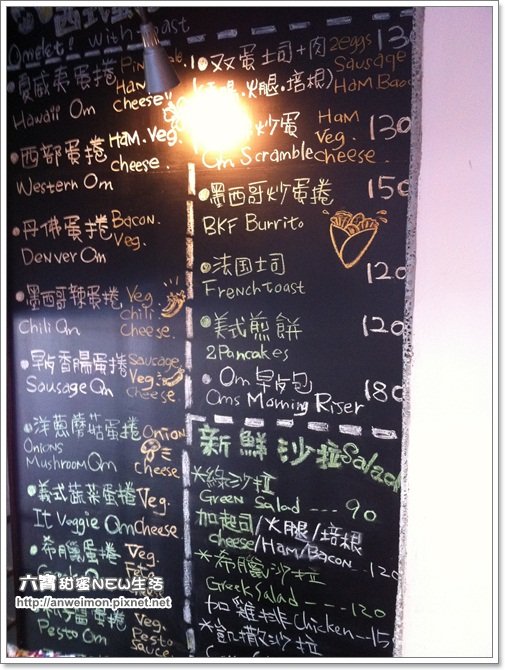 Omelet! with toast
夏威夷蛋捲
Hawaii Om
Ham
cheese
西部蛋捲 Ham.Veg.
Western Om cheese.
丹佛蛋捲 Bacon.
Denver Om Veg.
墨西哥辣蛋捲 Veg.
Chili Om chili
cheese.
早安香腸蛋捲 Saucage
Sausage Om Veg.
cheese
洋蔥蘑菇蛋捲 Onion
Onions
Mushroom Om cheese
義式蔬菜蛋捲 Veg.
It Veggie Om Cheese
希臘蛋捲 Veg.
Pesto Om Veg
Pesto
sauce
双蛋土司+肉 2eggs 130
火腿.培根) Sausage
Ham Baco
炒蛋 Ham
Veg. 130
Om Scramble cheese.
墨西哥炒蛋捲 150
BKF Burrito
法国土司 120
French Toast
美式煎餅 120
2Pancakes
Om 早安包 180
Oms Morning Riser
新鮮沙拉 Salad
*綠沙拉
Green Salad --- 90
加起司/火腿/培根
cheese/Ham/Bacon --- 120
*希臘沙拉
Greek Salad ---- 120
加雞排 Chicken --15
*凱撒沙拉
六寶 甜蜜NEW生活
http://anweimon.pixnet.net